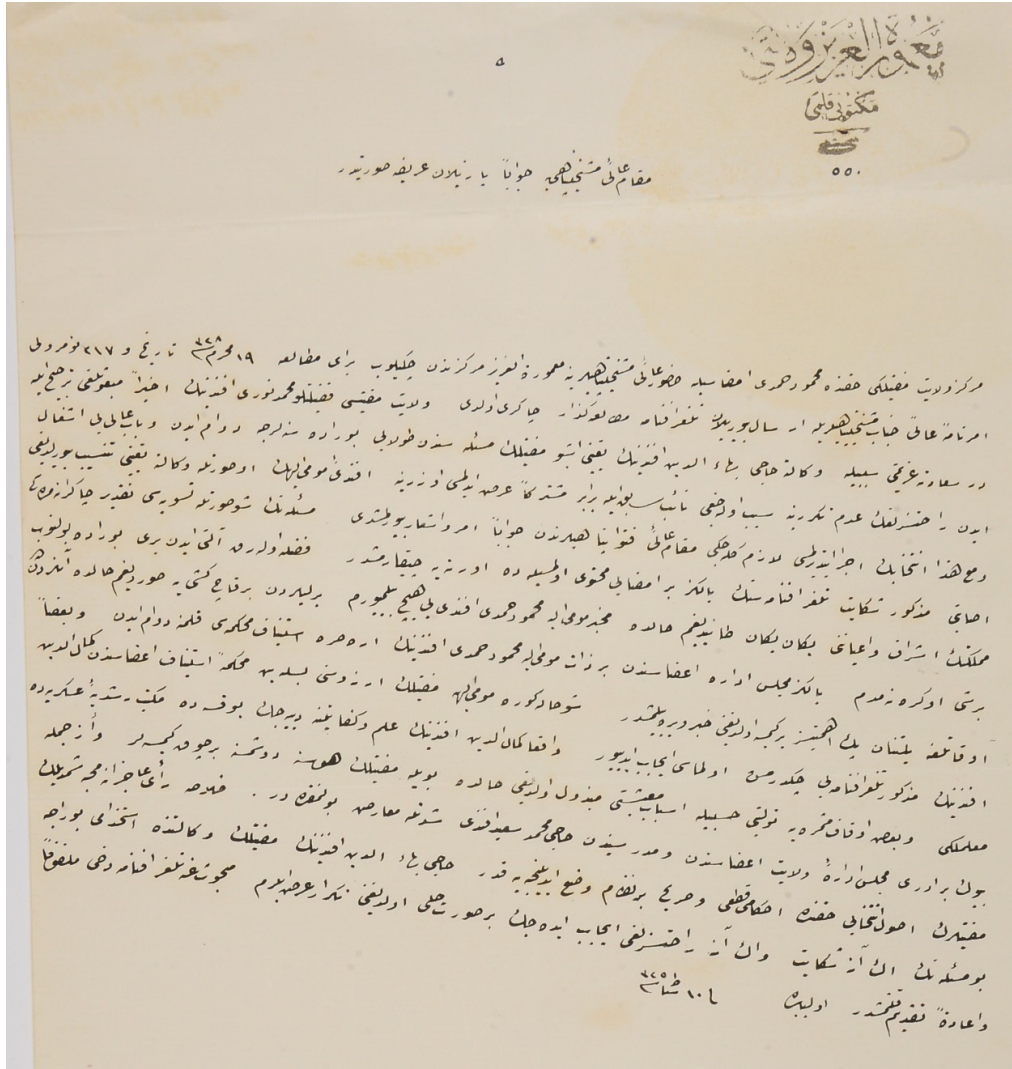 معمورة العزيز ولايتى
مكتوبى قلمى
عدد
٥٥٠
٥
مقام عالئ مشيختپناهى‌يه جواباً يازيلان عريضه صورتيدر
مركز ولايت مفتيلكى حقنده محمود حمدى امضاسيله حضور عالئ مشيختپناهيلرينه معمورة العزيز مركزندن چكيلوب براى مطالعه ١٩ محرم ٣٢٨ تاريخ و ٢١٧ نومرولى
امرنامۀ عالئ جناب مشيختپناهيلريله ارسال بيوريلان تلغرافنامه مطالعه‌گذار چاكرى اولدى ولايت مفتيسى فضيلتلو محمد نورى افندينك اخيراً
در سعادته عزيمتى سببيله وكالة حاجى بهاء الدين افندينك تعيينى اشبو مفتيلك مسئله سندن طولايى بوراده سنه لرجه دوام ايدن و باب عالى‌يى اشغال
ايدن راحتسزلغك عدم تكررينه سبب اوله جغى نائب سابق ايله برابر مشتركاً عرض ايدلمسى اوزرينه افندئ مومى اليهك او صورتله وكالة تعيينى تنسيب بيورلديغى
و مع هذا انتخابك اجرا ايتديرلمسى لازم كله جكى مقام عالئ فتواپناهيلرندن جواباً امر و اشعار بيورلمشدى مسئله نك شو صورتله تسويه سى
مذكور شكايت تلغرافنامه سنك يالكز بر امضايى محتوى اولمسيله ده اورته يه چيقارمشدر فضله اوله رق آلتى آيدن برى بوراده بولنوب
مملكتك اشراف و اعياننى يكان يكان طانيديغم حالده مخبر مومى اليه محمود حمدى افندى يى هيچ بيلميورم يرليلردن بر قاچ كشى يه صورديغم حالده
برشى اوكره نه مدم يالكز مجلس اداره اعضاسندن بر ذات مومى اليه محمود حمدى افندينك اره صره استيناف محكمه سى قلمنه دوام ايدن و بعضاً
اوقافله يلتنان پك اهميتسز بر كيمسه اولديغنى خبر ويره بيلمشدر شو حالده كوره مومى اليهك مفتيلك آرزوسنى بسله ين محكمۀ استيناف اعضاسندن كمال الدين
افندينك مذكور تلغرافنامه يى چكديرمش اولماسى ايجاب ايدييور واقعا كمال الدين افندينك علم و كفايتنه دييه جك يوقسه ده مكتب رشديۀ عسكريه ده
معلملكى و بعض اوقاف مقرره يه توليتى حسبيله اسباب معيشتى مبذول اولديغى حالده بويله مفتيلك هوسنه دوشمسنه برچوق كيمسه لر و از جمله
بيوك برادرى مجلس ادارۀ ولايت اعضاسندن و مدرسيندن حاجى محمد سعيد افندى شدتله معارض بولنمقده در . خلاصه رأى عاجزانه مجه شمديلك
مفتيلرك اصول انتخابى حقنده احكام قطعى و صريح بر نظام وضع ايدلنجه يه قدر حاجى بهاء الدين افندينك مفتيلك وكالتنده استخدامى بوراجه
بو مسئله نك اك آز شكايت و اك آز راحتسزلغى ايجاب ايده جك بر صورت حلى اولديغنى تكرار عرض ايلرم مبحوث عنه تلغرافنامه دخى ملفوفاً
و اعادةً تقديم قلنمشدر اولبابده
١٠ شباط ٣٢٥